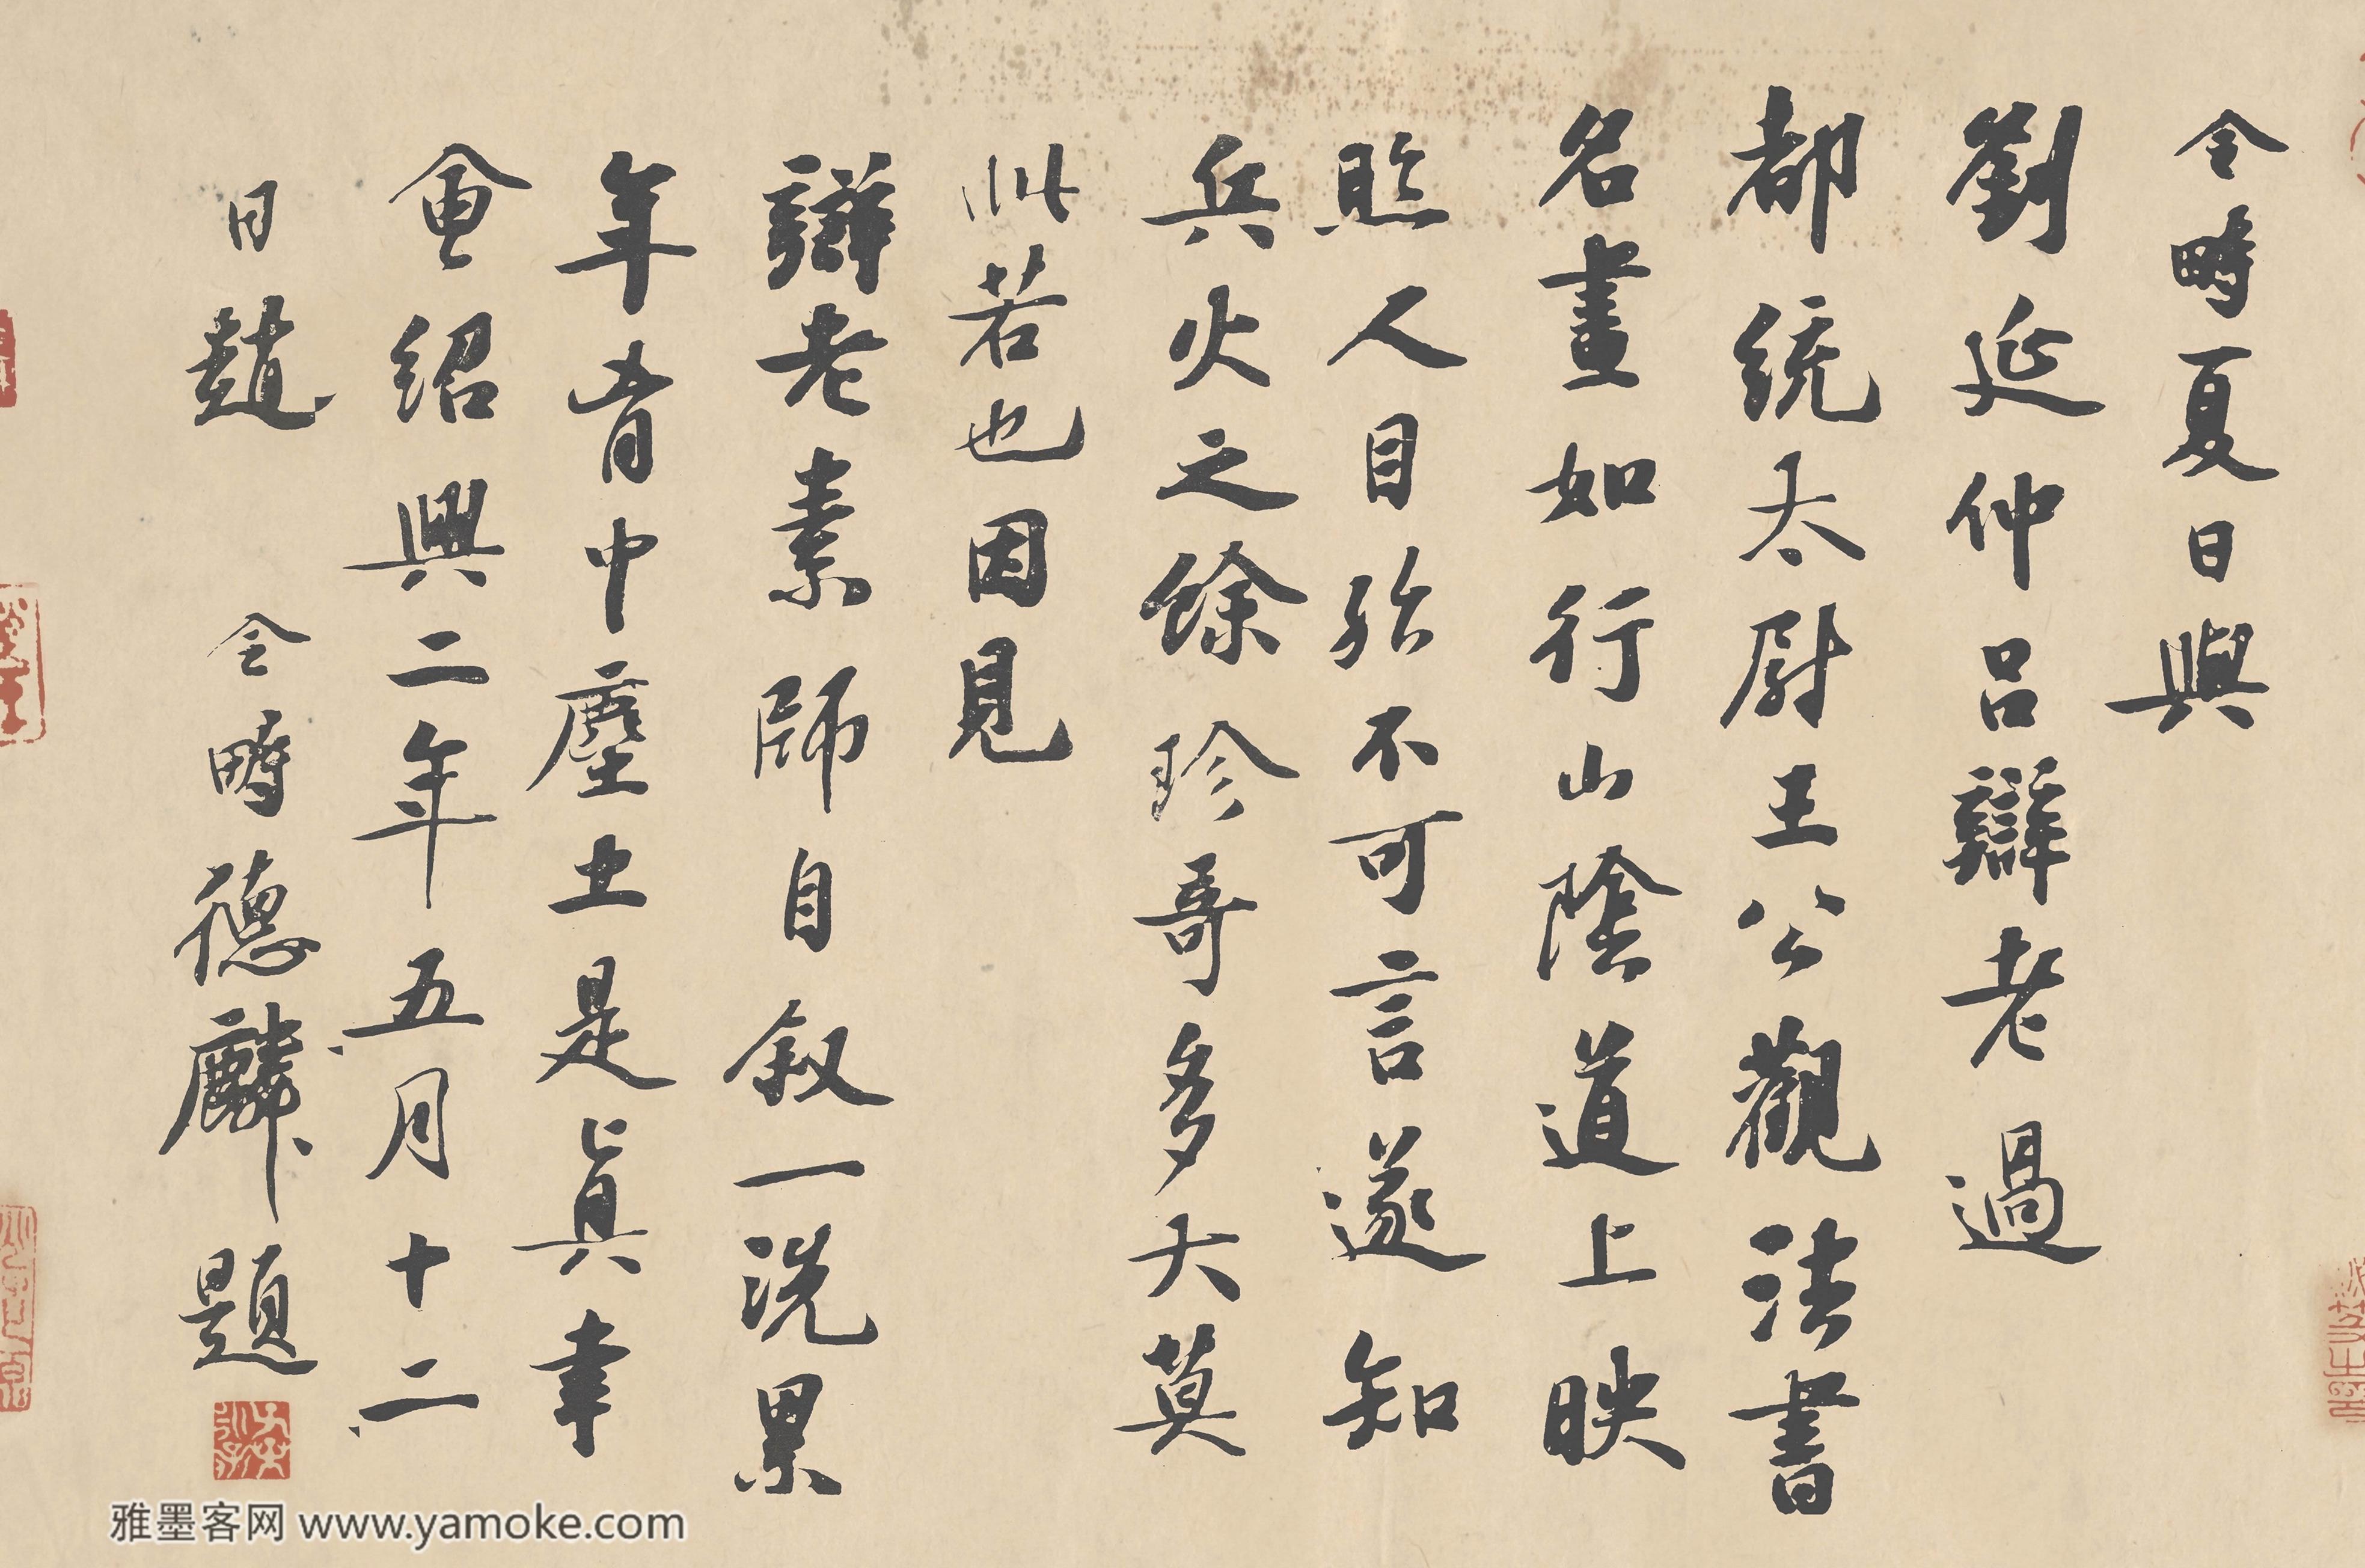 令畤夏日與
劉延仲吕辯老過
都統太尉王公觀法書
名畫如行山陰道上映
照人目殆不可言遂知
兵火之餘珍哥多大莫
此若也因見
辯老素師自叙一洗累
年胷中塵土是真幸
會紹興二年五月十二
日趙 令畤德麟題
雅墨客网 www.yamoke.com